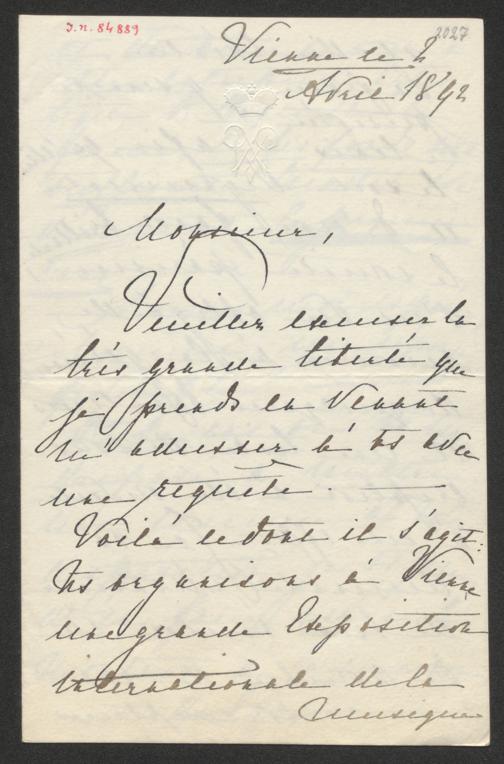 J.n. 84889
2027
Vienne le 2
Avril 1892
Monsieur,
Veuillez excuser la
très grande liberté que
je prends en venant
m'adresser à vs avec
une requête. —
Voilà ce dont il s'agit:
Ns organisons à Vienne
une grande Exposition
internationale de la
musique